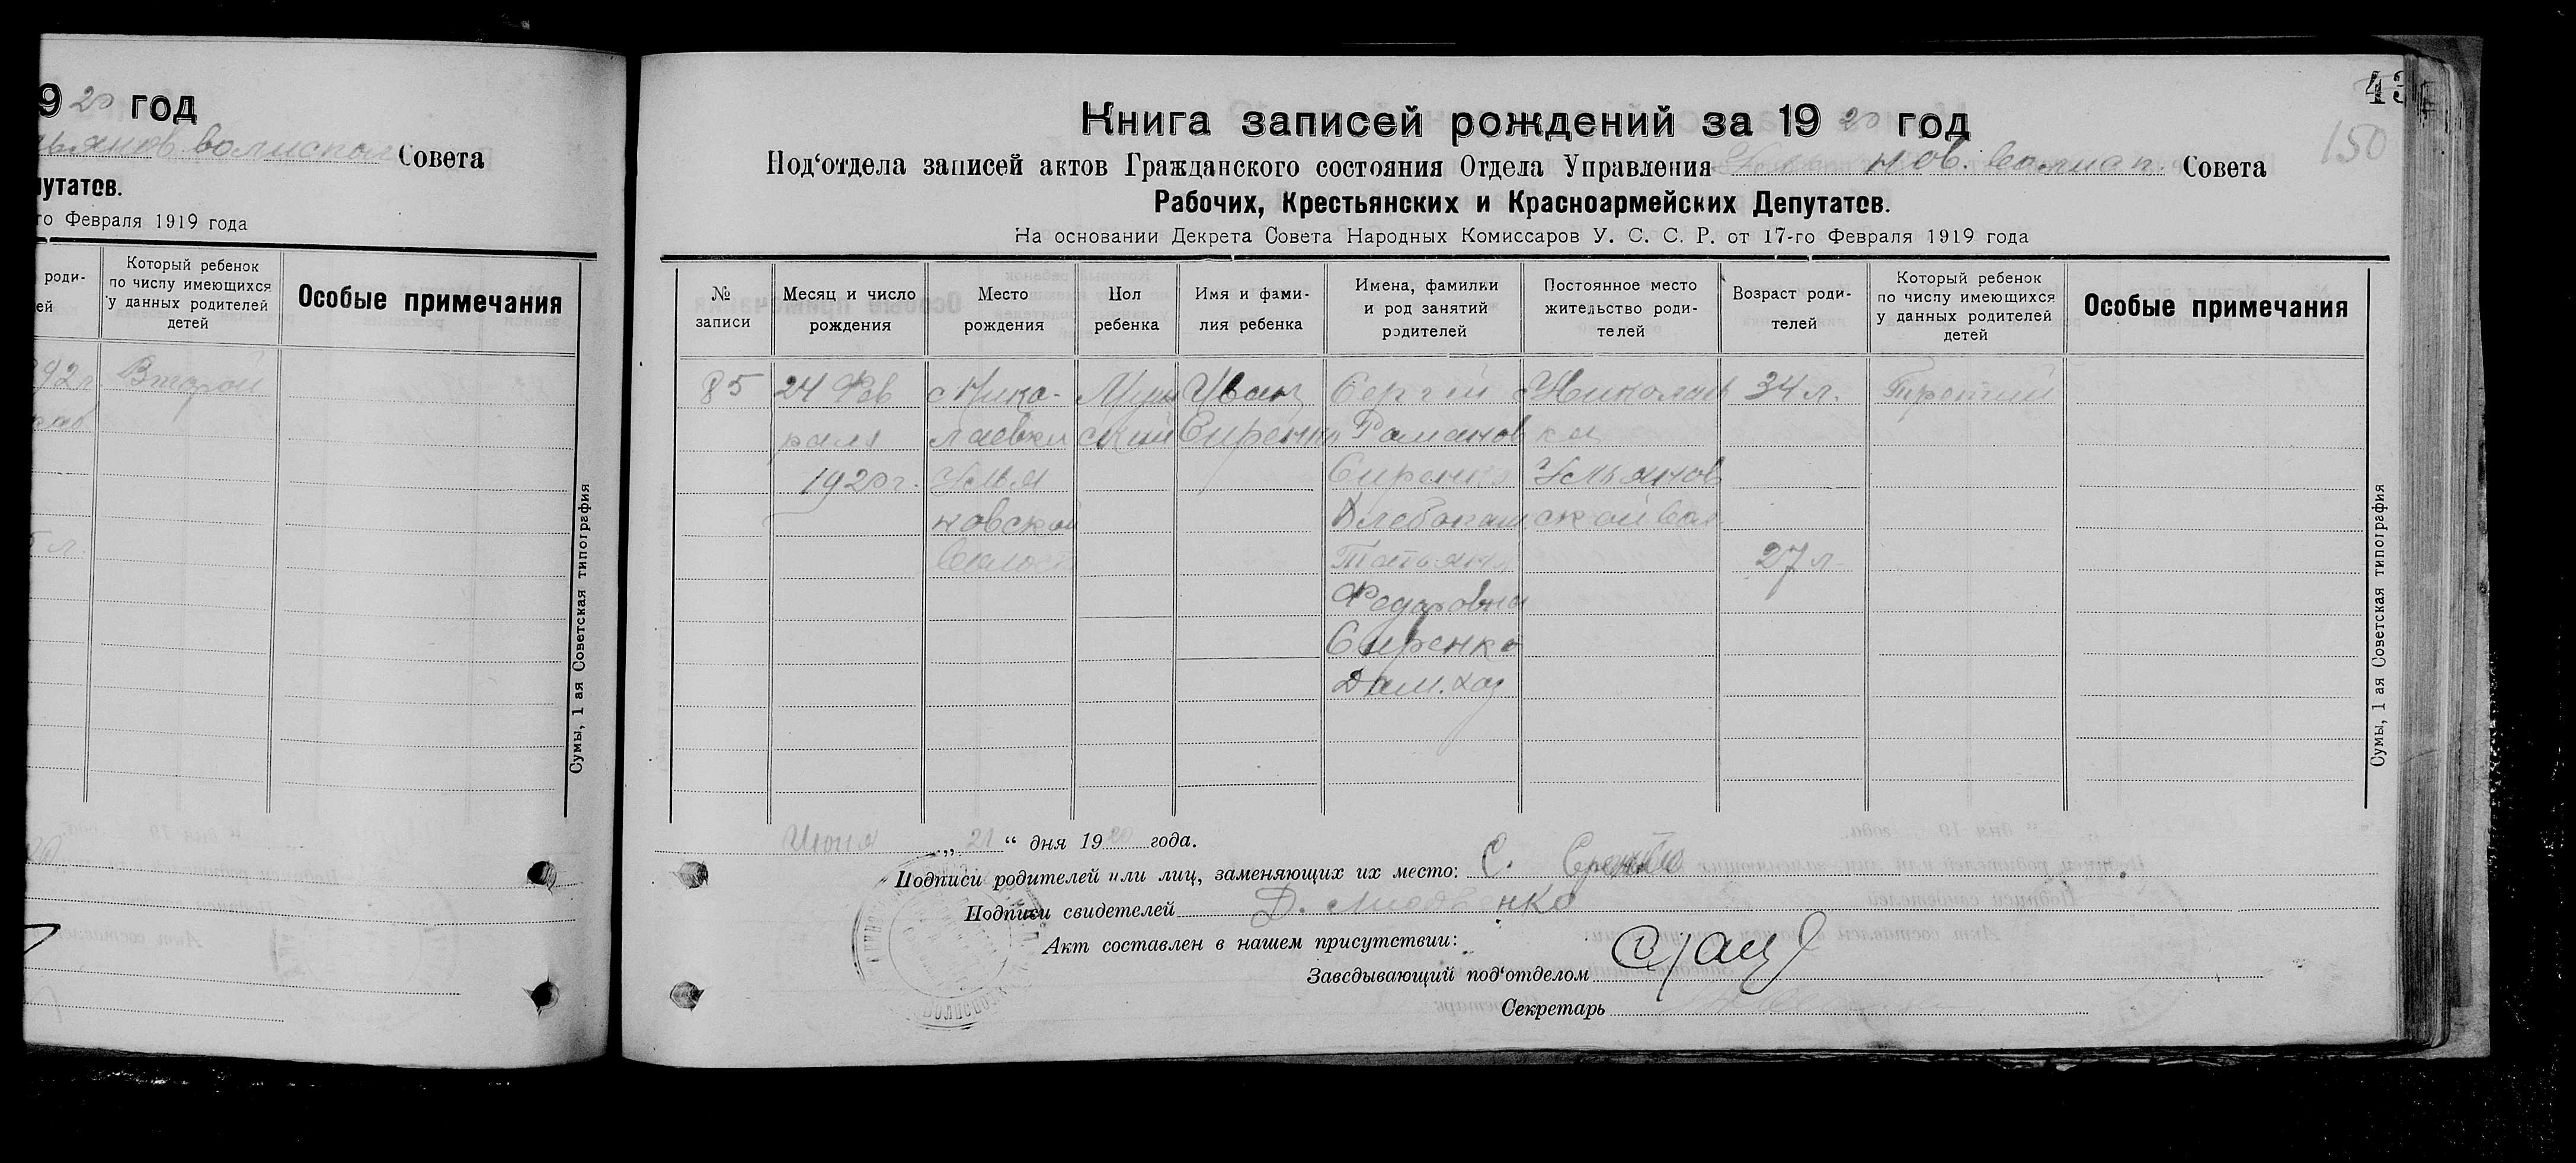 9 20 год
ьянов волиспол Совета
путатов.
го Февраля 1919 года
роди-
ей
Который ребенок
по числу имеющихся
у данных родителей
детей
Особые примечания
92 г
Второй
л.
Сумы, 1 ая Советская типография
43
150
Книга записей рождений за 19 20 год
Под'отдела записей актов Гражданского состояния Отдела Управления нов. волисп. Совета
Рабочих, Крестьянских и Красноармейских Депутатов.
На основании Декрета Совета Народных Комиссаров У. С. С. Р. от 17-го Февраля 1919 года
№
записи
Месяц и число
рождения
Место
рождения
Пол
ребенка
Имя и фами-
лия ребенка
Имена, фамилии
и род занятий
родителей
Постоянное место
жительство роди-
телей
Возраст роди-
телей
Который ребенок
по числу имеющихся
у данных родителей
детей
Особые примечания
85
24 Фев
раля
1920 г.
с Нико-
лаевки
Улья
новской
Волост
Муж
ский
Иван
Сиренко
Сергей
Романов
Сиренко
Хлебопаш
Татьяна
Федоровна
Сиренко
Дом. хоз
с Николаев
ка
Ульянов
ской вол
34 л.
27 л
Третий
Июня „ 21 “ дня 19 20 года.
Подписи родителей или лиц, заменяющих их место: С.
Подписи свидетелей Д.
Акт составлен в нашем присутствии:
Заведывающий под'отделом
Секретарь
Сумы, 1 ая Советская типография